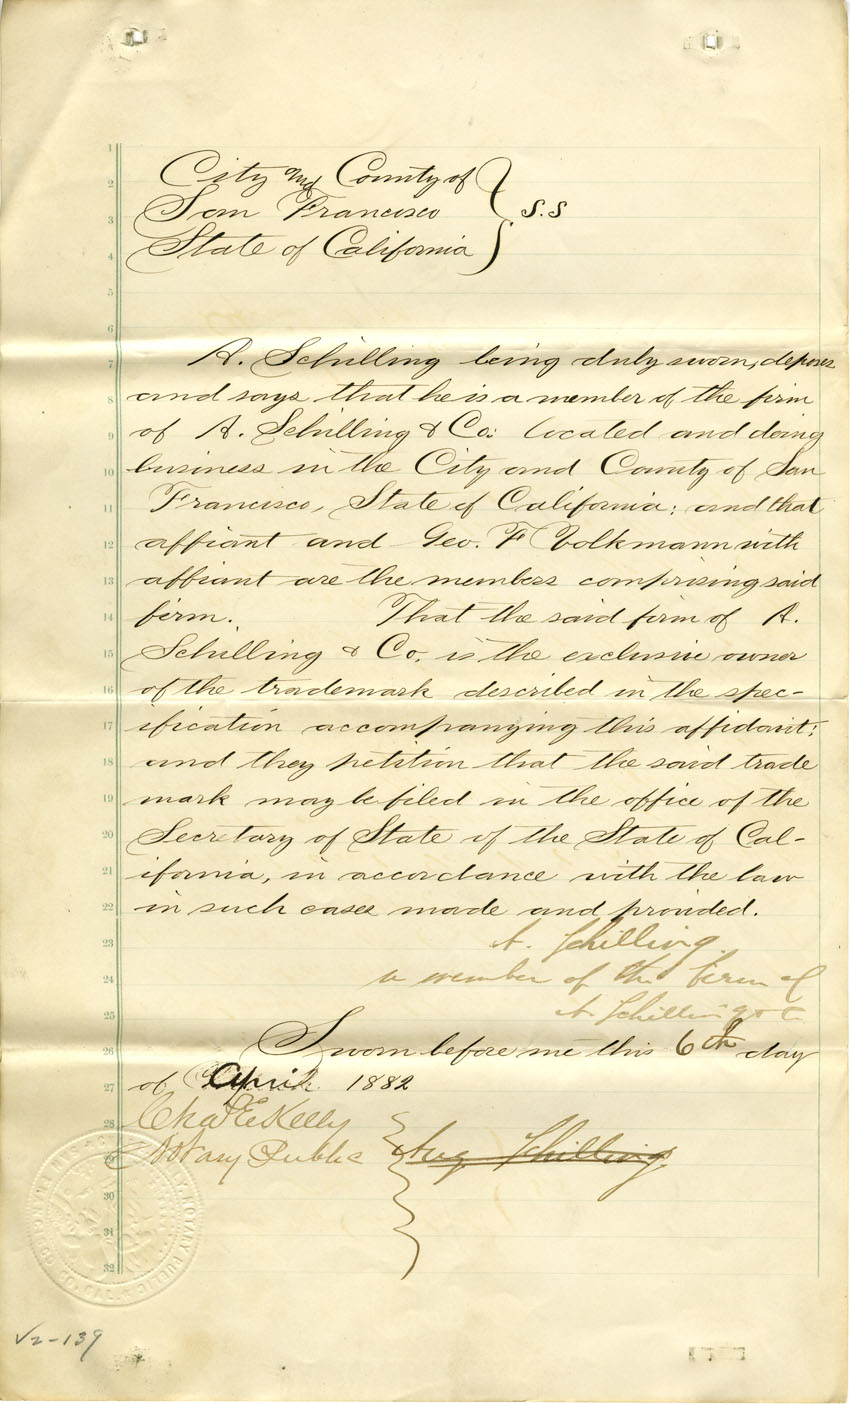 City and County of
San Francisco } S.S
State of California
A. Schilling being duly sworn, deposes
and says that he is a member of the firm
of A. Schilling & Co: located and doing
business in the City and County of San
Francisco, State of California: and that
affiant and Geo. F Volkmann with
affiant are the members comprising said
firm. That the said firm of A.
Schilling & Co. is the exclusive owner
of the trademark described in the spec-
ification accompanying this affidavit:
and they petition that the said trade
mark may be filed in the office of the
Secretary of State of the State of Cal-
ifornia, in accordance with the law
in such cases made and provided.
A. Schilling
a member of the firm of
A Schilling & Co
Sworn before me this 6th day
of April 1882
Chas E Kelly
Notary Public
Aug Schilling
NOTARY PUBLIC
SAN FRANCISCO CO. CAL.
V2-139
1
2
3
4
5
6
7
8
9
10
11
12
13
14
15
16
17
18
19
20
21
22
23
24
25
26
27
28
29
30
31
32